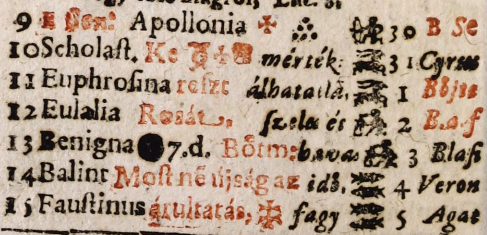 9 Apollonia ✠ 30 B Se
10 Scholast. Ke mérték: 31 Cyrus
11 Euphrosina reszt álhatatlā, 1
12 Eulalia Rosát, szeles ét 2
13 Benigna ●7.d. Bőtm: havas 3 Blasi
14 Balint Most nē ujság az idő, 4 Veron
15 Faustinus árultatás, ✠ fagy 5 Agat